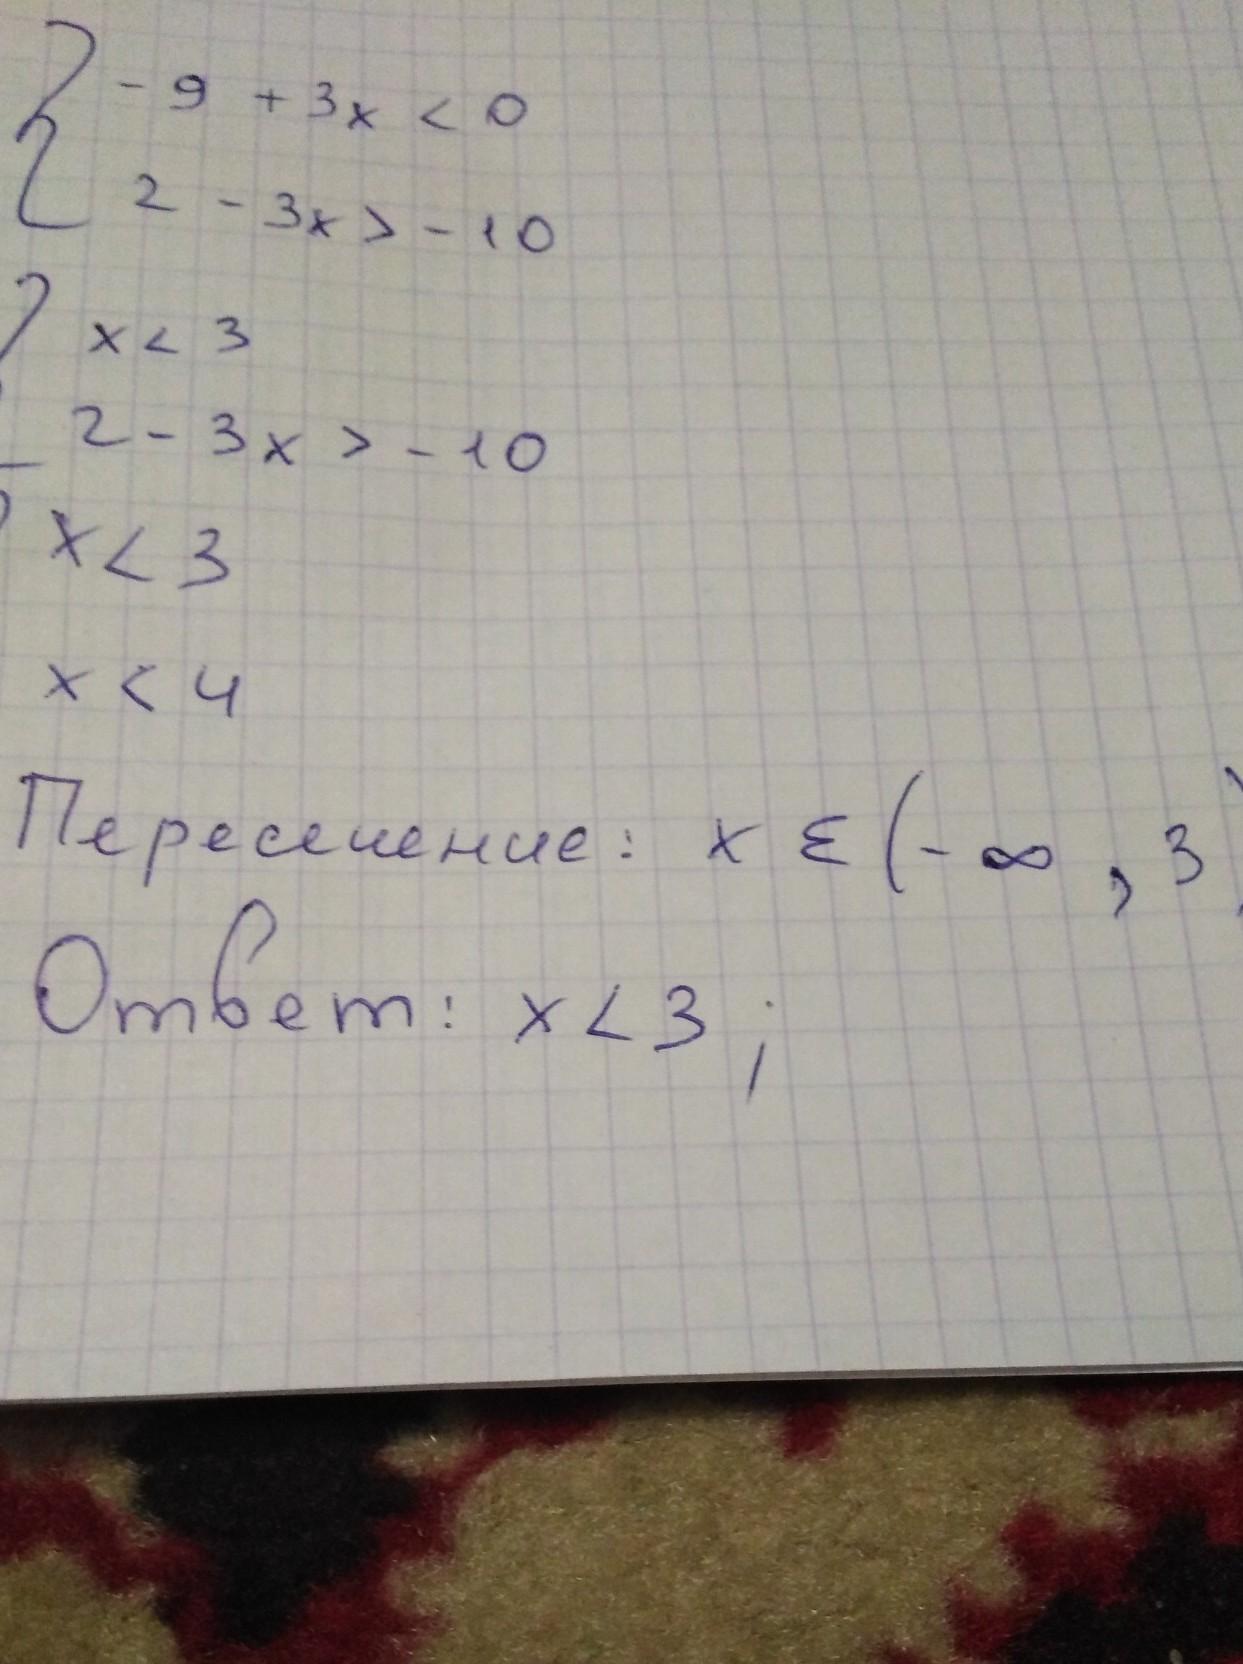 - 9 + 3x < 0
2 - 3x > - 10
x < 3
2 - 3x > - 10
x < 3
x < 4
Пересечение: x ∈ (- ∞ , 3)
Ответ: x < 3 ;